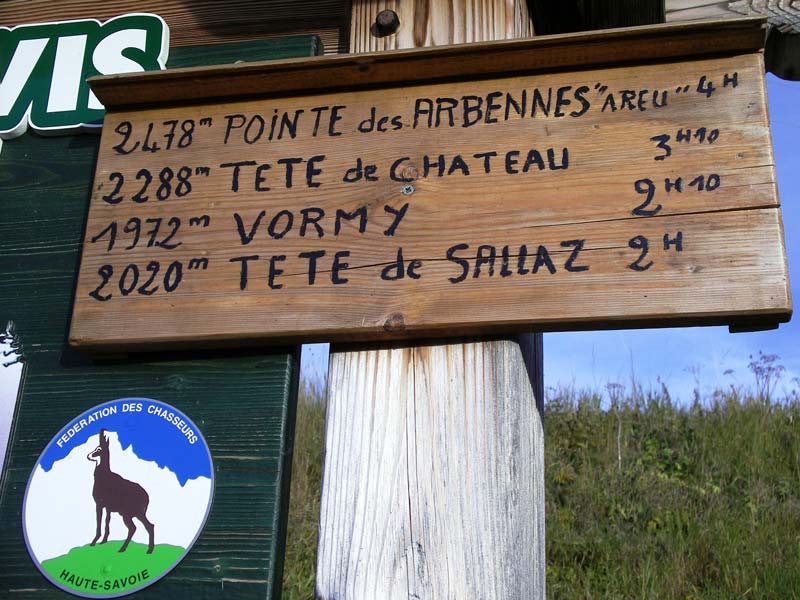 VIS
2478m POINTE des ARBENNES "AREU" 4H
2288m TETE de CHATEAU 3H10
1972m VORMY 2H10
2020m TETE de SALLAZ 2H
FEDERATION DES CHASSEURS
HAUTE-SAVOIE